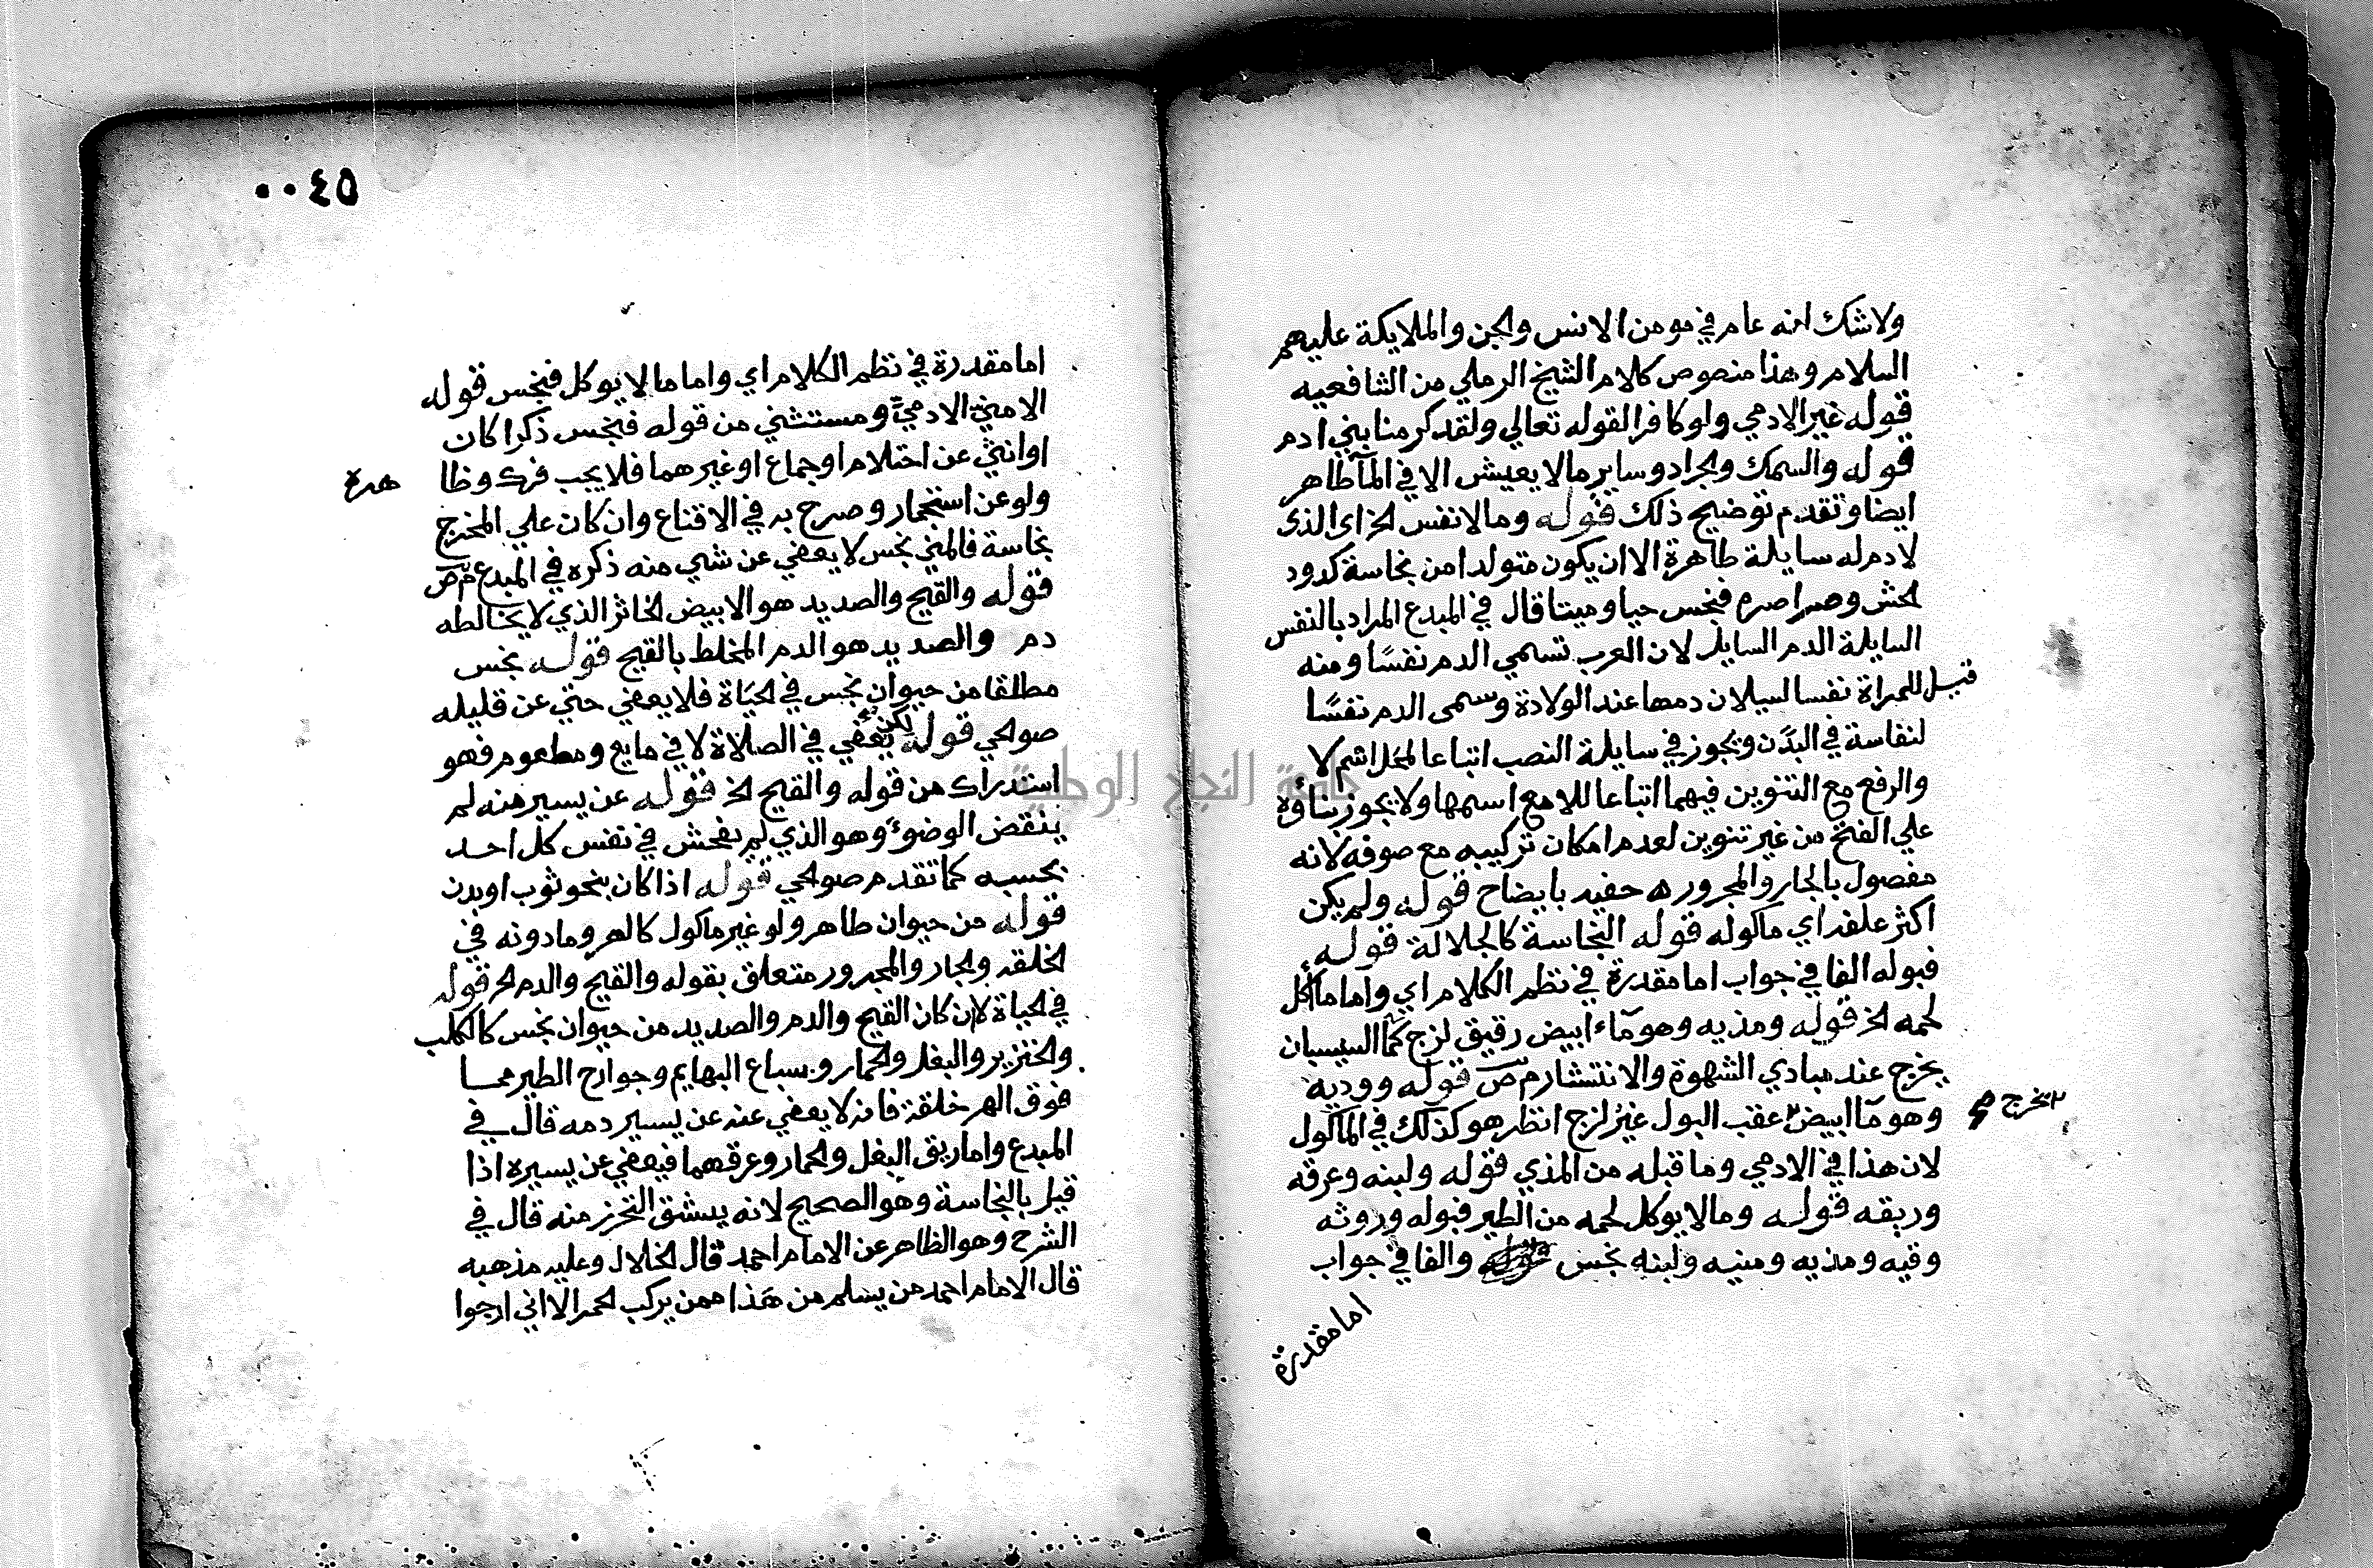 ولا شك انه عام في مومن الانس والجن والملايكة عليهم
السلام وهذا منصوص كلام الشيخ الرملي من الشافعيه
قوله غير الادمي ولو كافرا لقوله تعالي ولقد كرمنا بني ادم
قوله والسمك والجراد وساير ما لا يعيش الا في المآ طاهر
ايضا وتقدم توضيح ذلك قوله وما لا نفس الخ اى الذى
لا دم له سايلة طاهرة الا ان يكون متولدا من نجاسة كدود
الحش وصراصره فنجس حيا وميتا قال في المبدع المراد بالنفس
السايلة الدم السايل لان العرب تسمي الدم نفسًا ومنه
قيل للمراة نفسا لسيلان دمها عند الولادة وسمى الدم نفسًا
لنفاسة في البدن ويجوز في سايلة النصب اتباعا لمحل اسم لا
والرفع مع التنوين فيهما اتباعا للا مع اسمها ولا يجوز بناؤه
علي الفتح من غير تنوين لعدم امكان تركيبه مع صوفه لانه
مفصول بالجار والمجرور ه حفيد بايضاح قوله ولم يكن
اكثر علفه اي ماكوله قوله النجاسة كالجلالة قوله
فبوله الفا في جواب اما مقدرة في نظم الكلام اي واما ما أكل
لحمه الخ قوله ومذيه وهو مآء ابيض رقيق لزج كمآ السيسبان
يخرج عند مبادي الشهوة والانتشار م ص قوله ووديه
وهو مآ ابيض عقب البول غير لزج انظر هو كذلك في الماكول
يخرج
لان هذا في الادمي وما قبله من المذي قوله ولبنه وعرقه
وريقه قوله وما لا يوكل لحمه من الطير فبوله وروثه
وقيه ومذيه ومنيه ولبنه نجس والفا في جواب
اما مقدرة
٠٠٤٥
اما مقدرة في نظم الكلام اي واما ما لا يوكل فنجس قوله
الا مني الادمي ومستثني من قوله فنجس ذكرا كان
او انثي عن احتلام او جماع او غيرهما فلا يجب فرك وظا هره
ولو عن استجمار وصرح به في الاقناع وان كان علي المخرج
نجاسة فالمني نجس لا يعفي عن شي منه ذكره في المبدع م ص
قوله والقيح والصديد هو الابيض الخاثر الذي لا يخالطه
دم والصديد هو الدم المخلط بالقيح قوله نجس
مطلقا من حيوان نجس في الحياة فلا يعفي حتي عن قليله
صوالحي قوله لكن يعفي في الصلاة لا في مايع ومطعوم فهو
استدراك من قوله والقيح الخ قوله عن يسير منه لم
ينقض الوضوء وهو الذي لم يفحش في نفس كل احد
بحسبه كما تقدم صوالحي قوله اذا كان بنحو ثوب او بدن
قوله من حيوان طاهر ولو غير ماكول كالهر وما دونه في
الخلقه والجار والمجرور متعلق بقوله والقيح والدم الخ قوله
في الحياة لان كان القيح والدم والصديد من حيوان نجس كالكلب
والخنزير والبغل والحمار وسباع البهايم وجوارح الطير مما
فوق الهر خلقة فانه لا يعفي عنه عن يسير دمه قال في
المبدع واما ريق البغل والحمار وعرقهما فيعفي عن يسيره اذا
قيل بالنجاسة وهو الصحيح لانه يشق التحرز منه قال في
الشرح وهو الظاهر عن الامام احمد قال الخلال وعليه مذهبه
قال الامام احمد من يسلم من هذا ممن يركب الحمر الا اني ارجوا
جامعة النجاح الوطنية